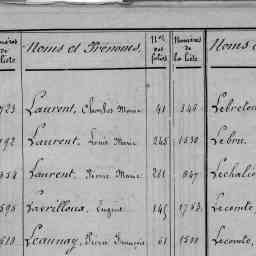 Numéros de liste Noms et Prénoms, Nos des folios Numéros de la liste Noms et
723 Laurent, Charles Marie 41 546 Lebreton
192 Laurent, Louis Marie 245 1530 Lebru
354 Laurent, Pierre Marie 211 847 Lechalie
595 Lavrilloux, Eugène 145 1753 Lecomte,
510 Leaunay, Pierre François 61 1511 Lecomte,